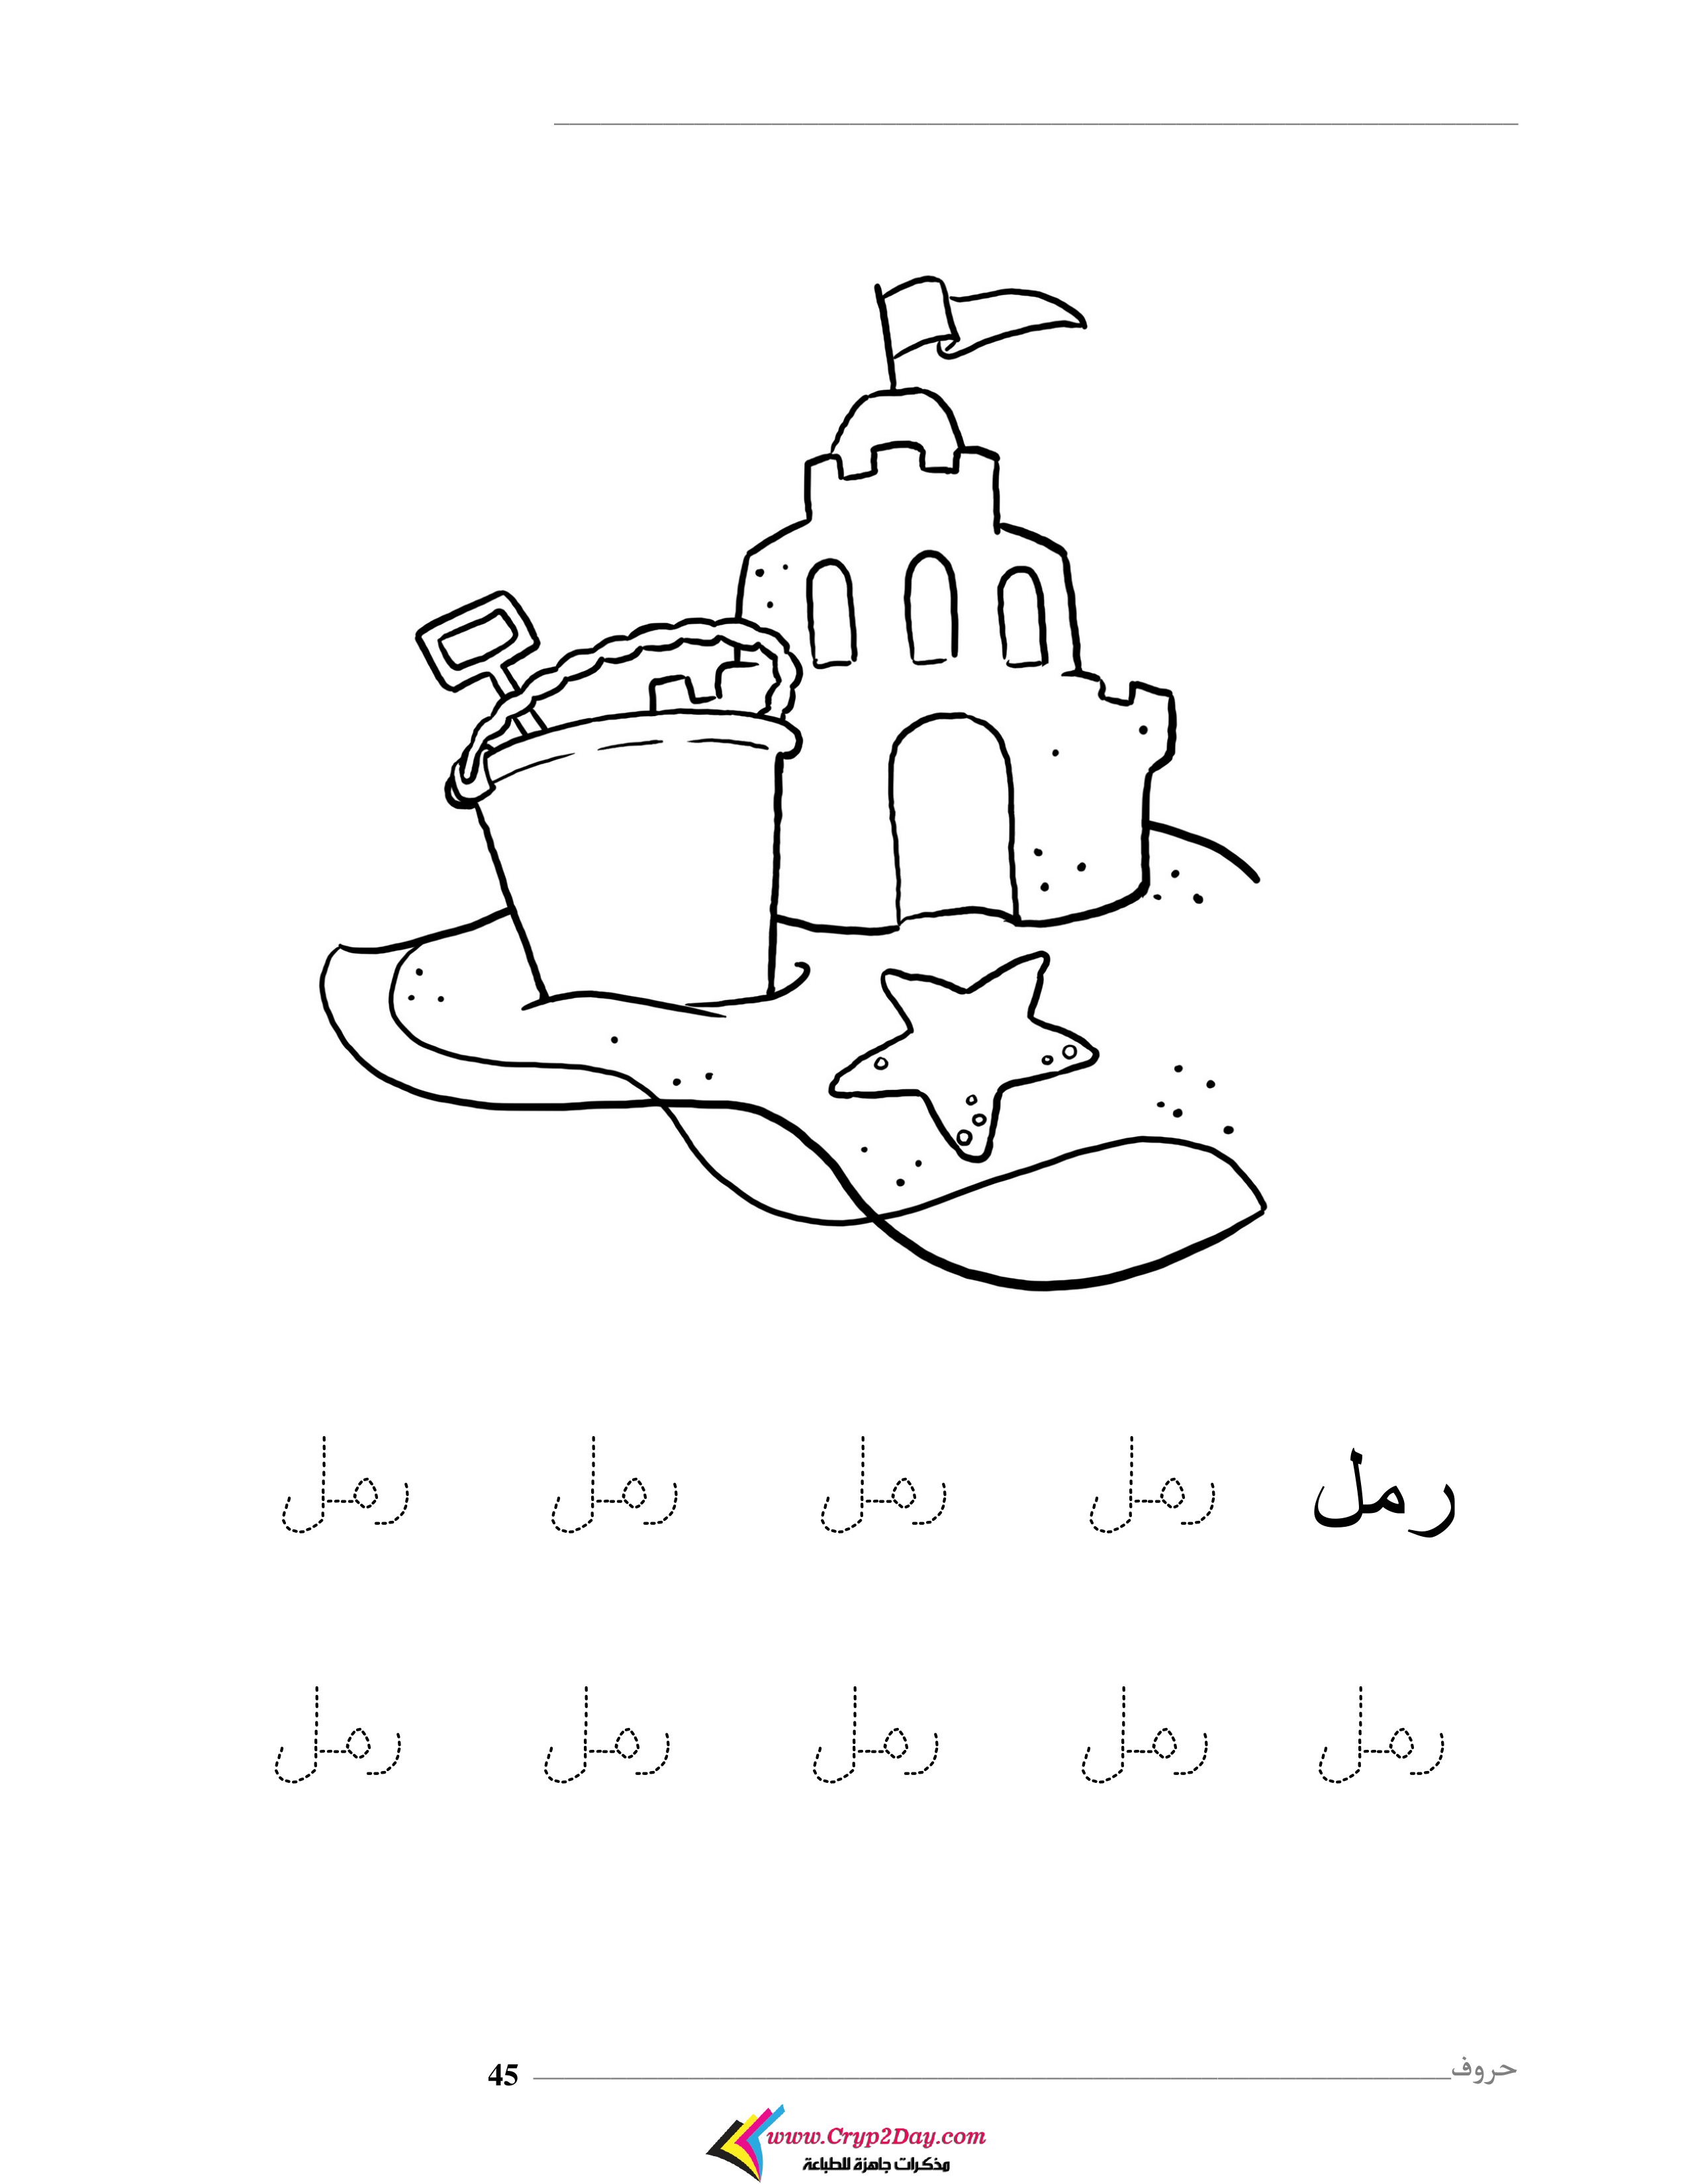 رمل رمل رمل رمل رمل
رمل رمل رمل رمل رمل
حروف 45
www.Cryp2Day.com
مذكرات جاهزة للطباعة